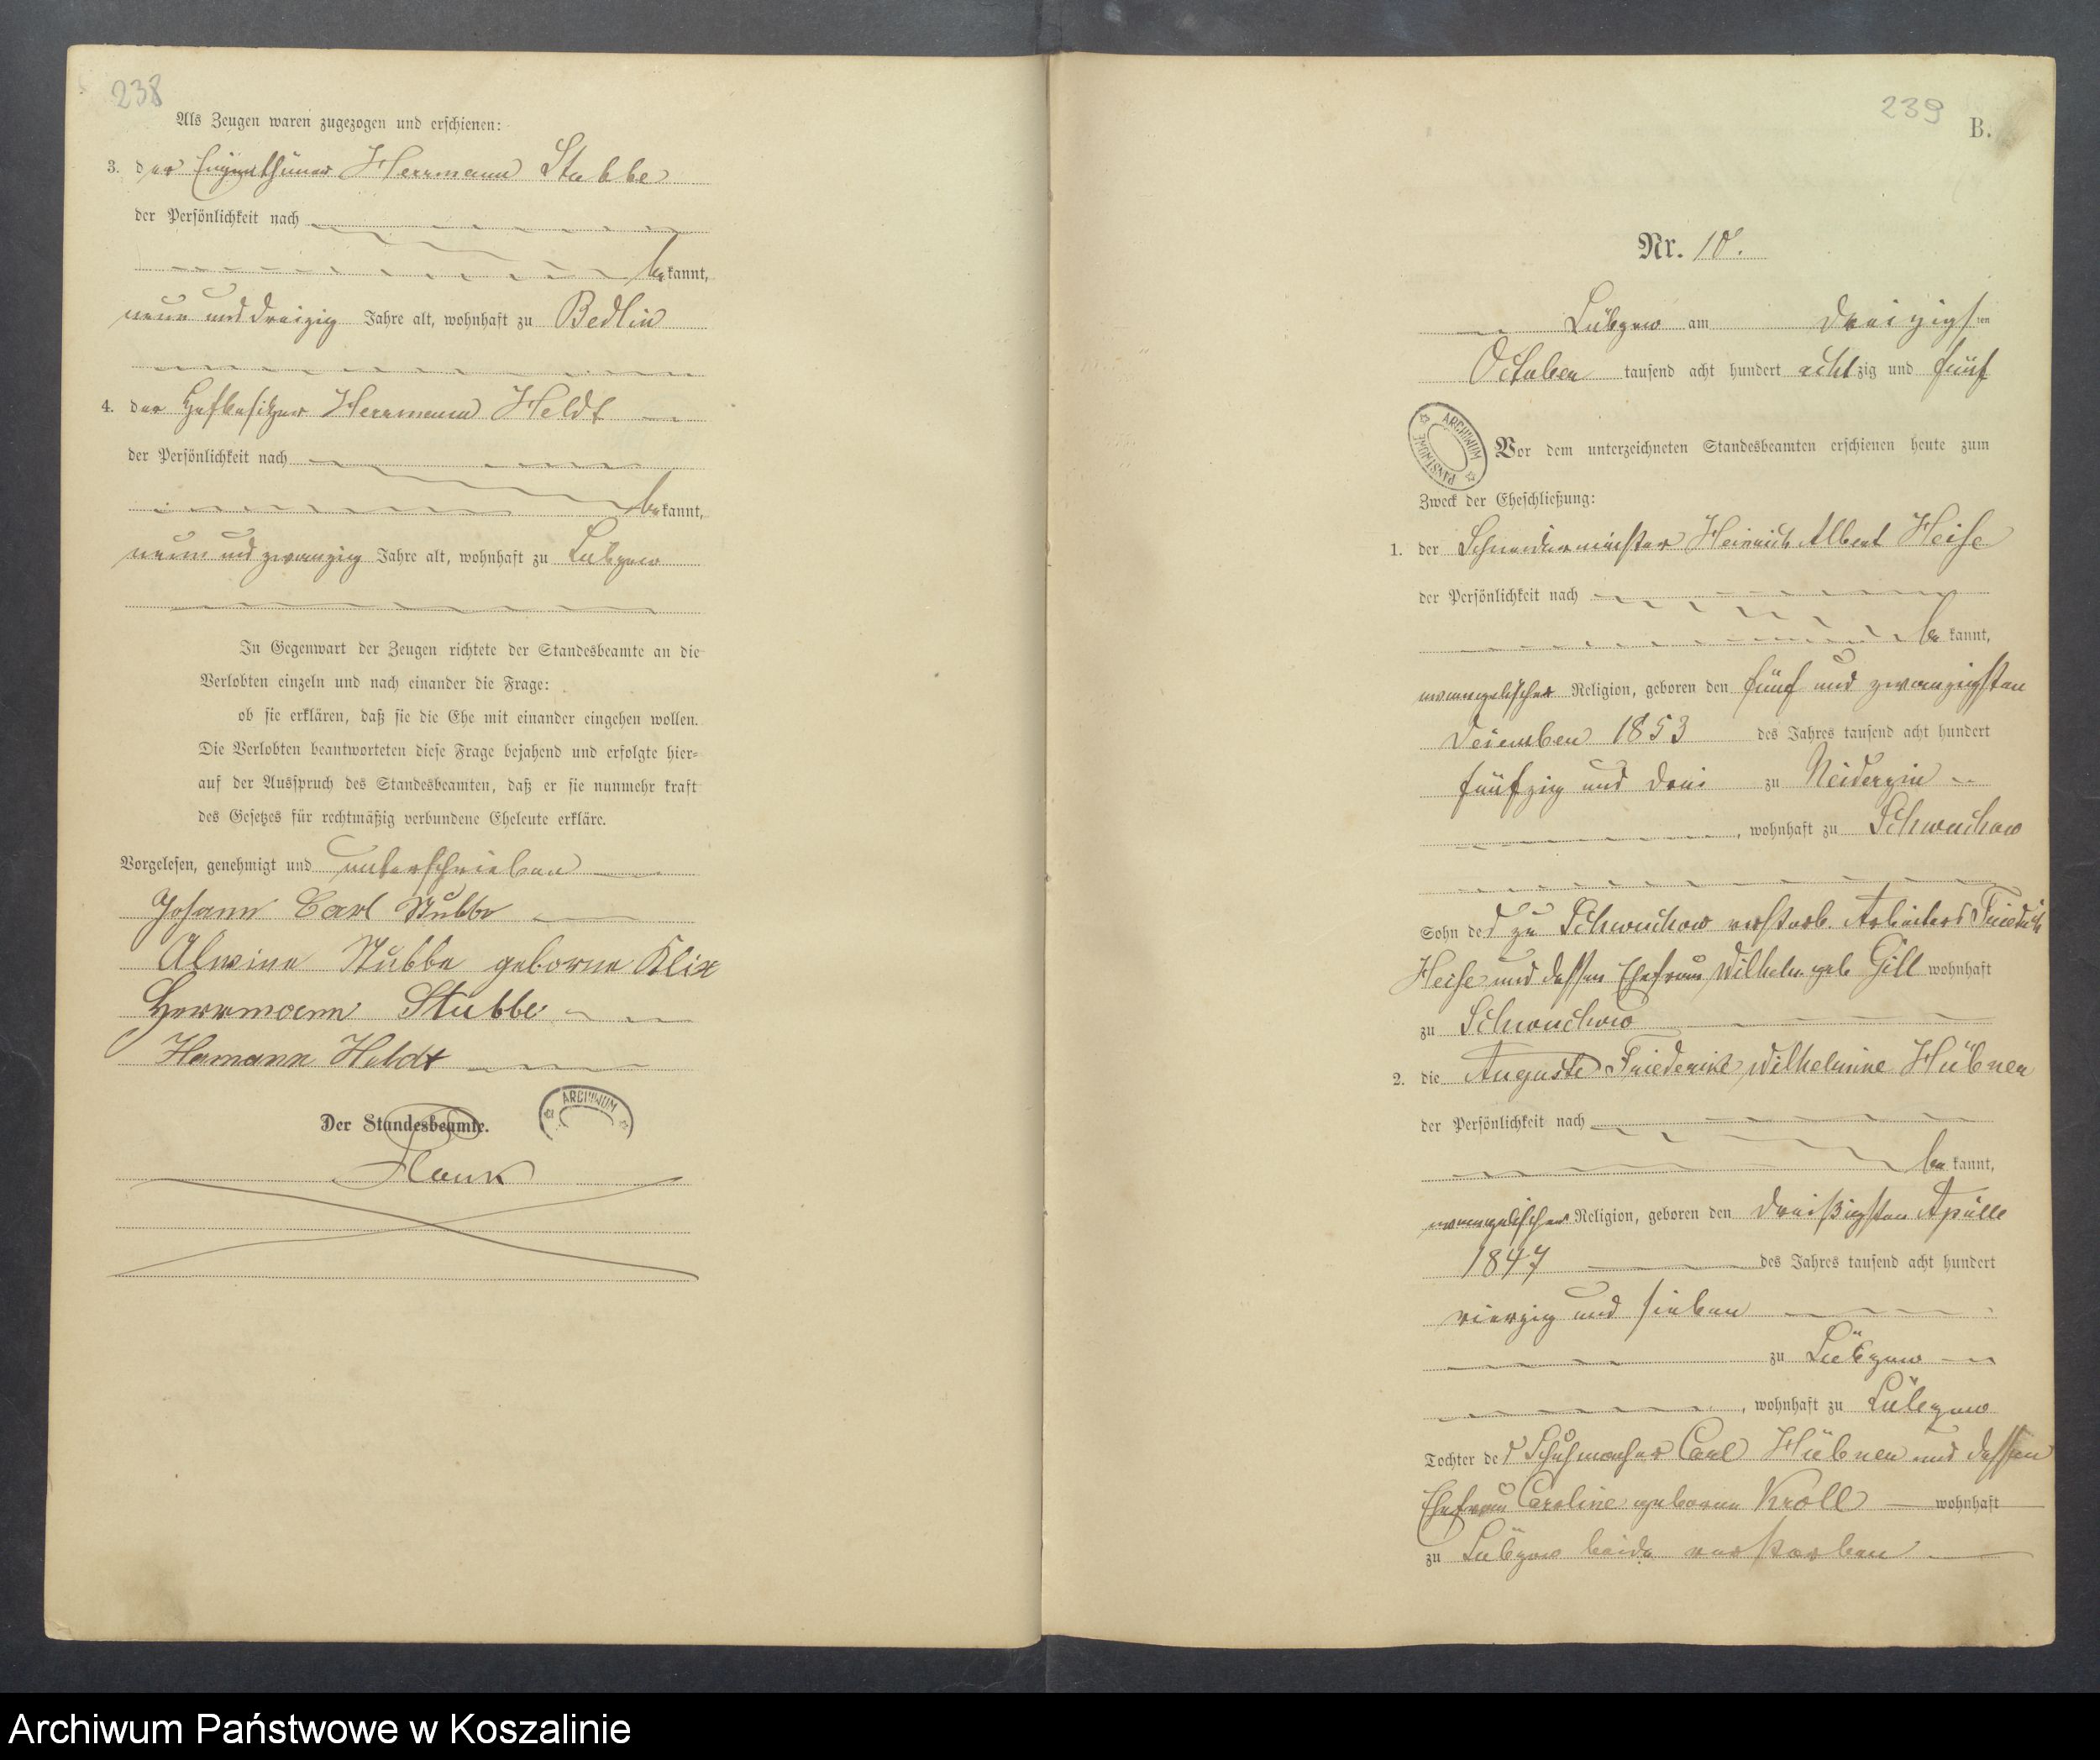 238
Als Zeugen waren zugezogen und erschienen:
3. der Eigenthümer Herrmann Stubbe
der Persönlichkeit nach
be kannt,
neun und dreizig Jahre alt, wohnhaft zu Bedlin
4. der Hofbesitzer Herrmann Heldt
der Persönlichkeit nach
be kannt,
neun und zwanzig Jahre alt, wohnhaft zu Lübzow
In Gegenwart der Zeugen richtete der Standesbeamte an die
Verlobten einzeln und nach einander die Frage:
ob sie erklären, daß sie die Ehe mit einander eingehen wollen.
Die Verlobten beantworteten diese Frage bejahend und erfolgte hier-
auf der Ausspruch des Standesbeamten, daß er sie nunmehr kraft
des Gesetzes für rechtmäßig verbundene Eheleute erkläre.
Vorgelesen, genehmigt und unterschrieben
Johann Carl Stubbe
Alwine Stubbe geborne Klix
Herrmann Stubbe
Hermann Heldt
Der Standesbeamte.
ARCHIWUM
239
B.
Nr. 10.
Lübzow am dreizigsten
October tausend acht hundert achtzig und fünf
ARCHIWUM PAŃSTWOWE
Vor dem unterzeichneten Standesbeamten erschienen heute zum
Zweck der Eheschließung:
1. der Schneidermeister Heinrich Albert Heise
der Persönlichkeit nach
be kannt,
evangelischer Religion, geboren den fünf und zwanzigsten
Dezember 1853 des Jahres tausend acht hundert
fünfzig und drei zu
, wohnhaft zu Schwuchow
Sohn des zu Schwuchow verstorb. Arbeiters Friedrich
Heise und dessen Ehefrau Wilhelm. geb Gill wohnhaft
zu Schwuchow
2. die Auguste Friederike Wilhelmine Hübner
der Persönlichkeit nach
be kannt,
evangelischer Religion, geboren den dreißigsten Aprill
1847 des Jahres tausend acht hundert
vierzig und sieben
zu Lübzow
, wohnhaft zu Lübzow
Tochter des Schuhmacher Carl Hübner und dessen
Ehefrau Caroline geborne Kroll wohnhaft
zu Lübzow beide verstorben
Archiwum Państwowe w Koszalinie